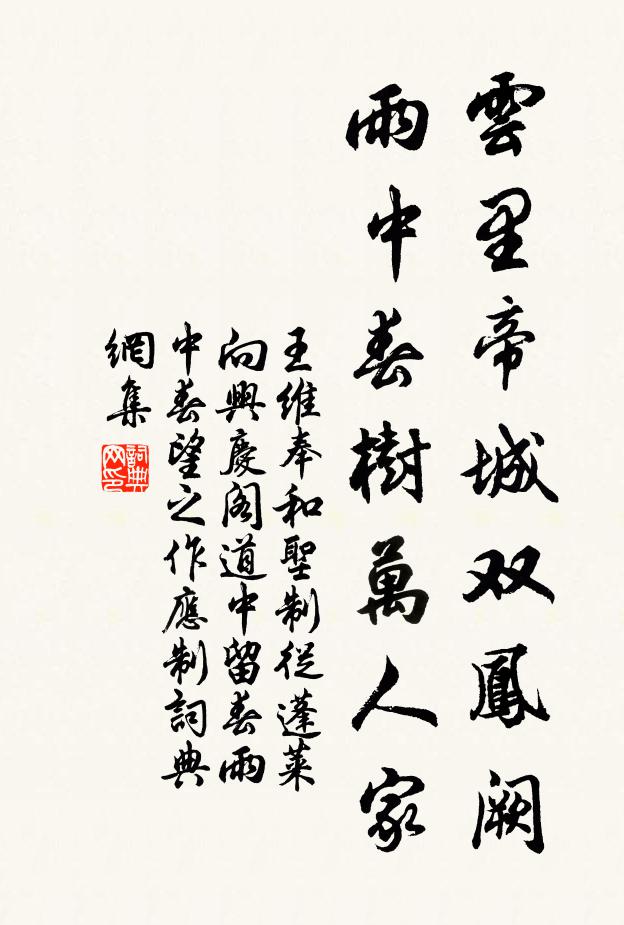 雲里帝城双鳳闕
雨中春樹萬人家
王維奉和聖制從蓬萊
向興慶閣道中留春雨
中春望之作應制詞典
網集
詞典
网印